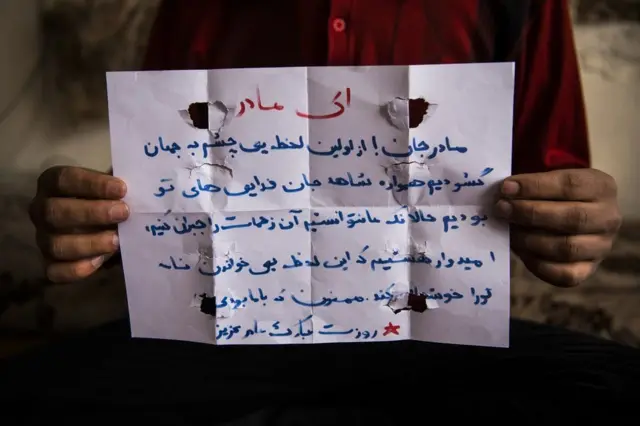 ای مادر
مادر جان! از اولین لحظه یی چشم به جهان
گشودیم همواره شاهد جان فدایی های تو
بودیم حالانکه ما نتوانستیم آن زحمات را جبران کنیم،
امیدوار هستیم که این لحظه یی خواندن نامه
تورا خوشحال کند. ممنون که با ما بودی
روزت مبارک مادر عزیز